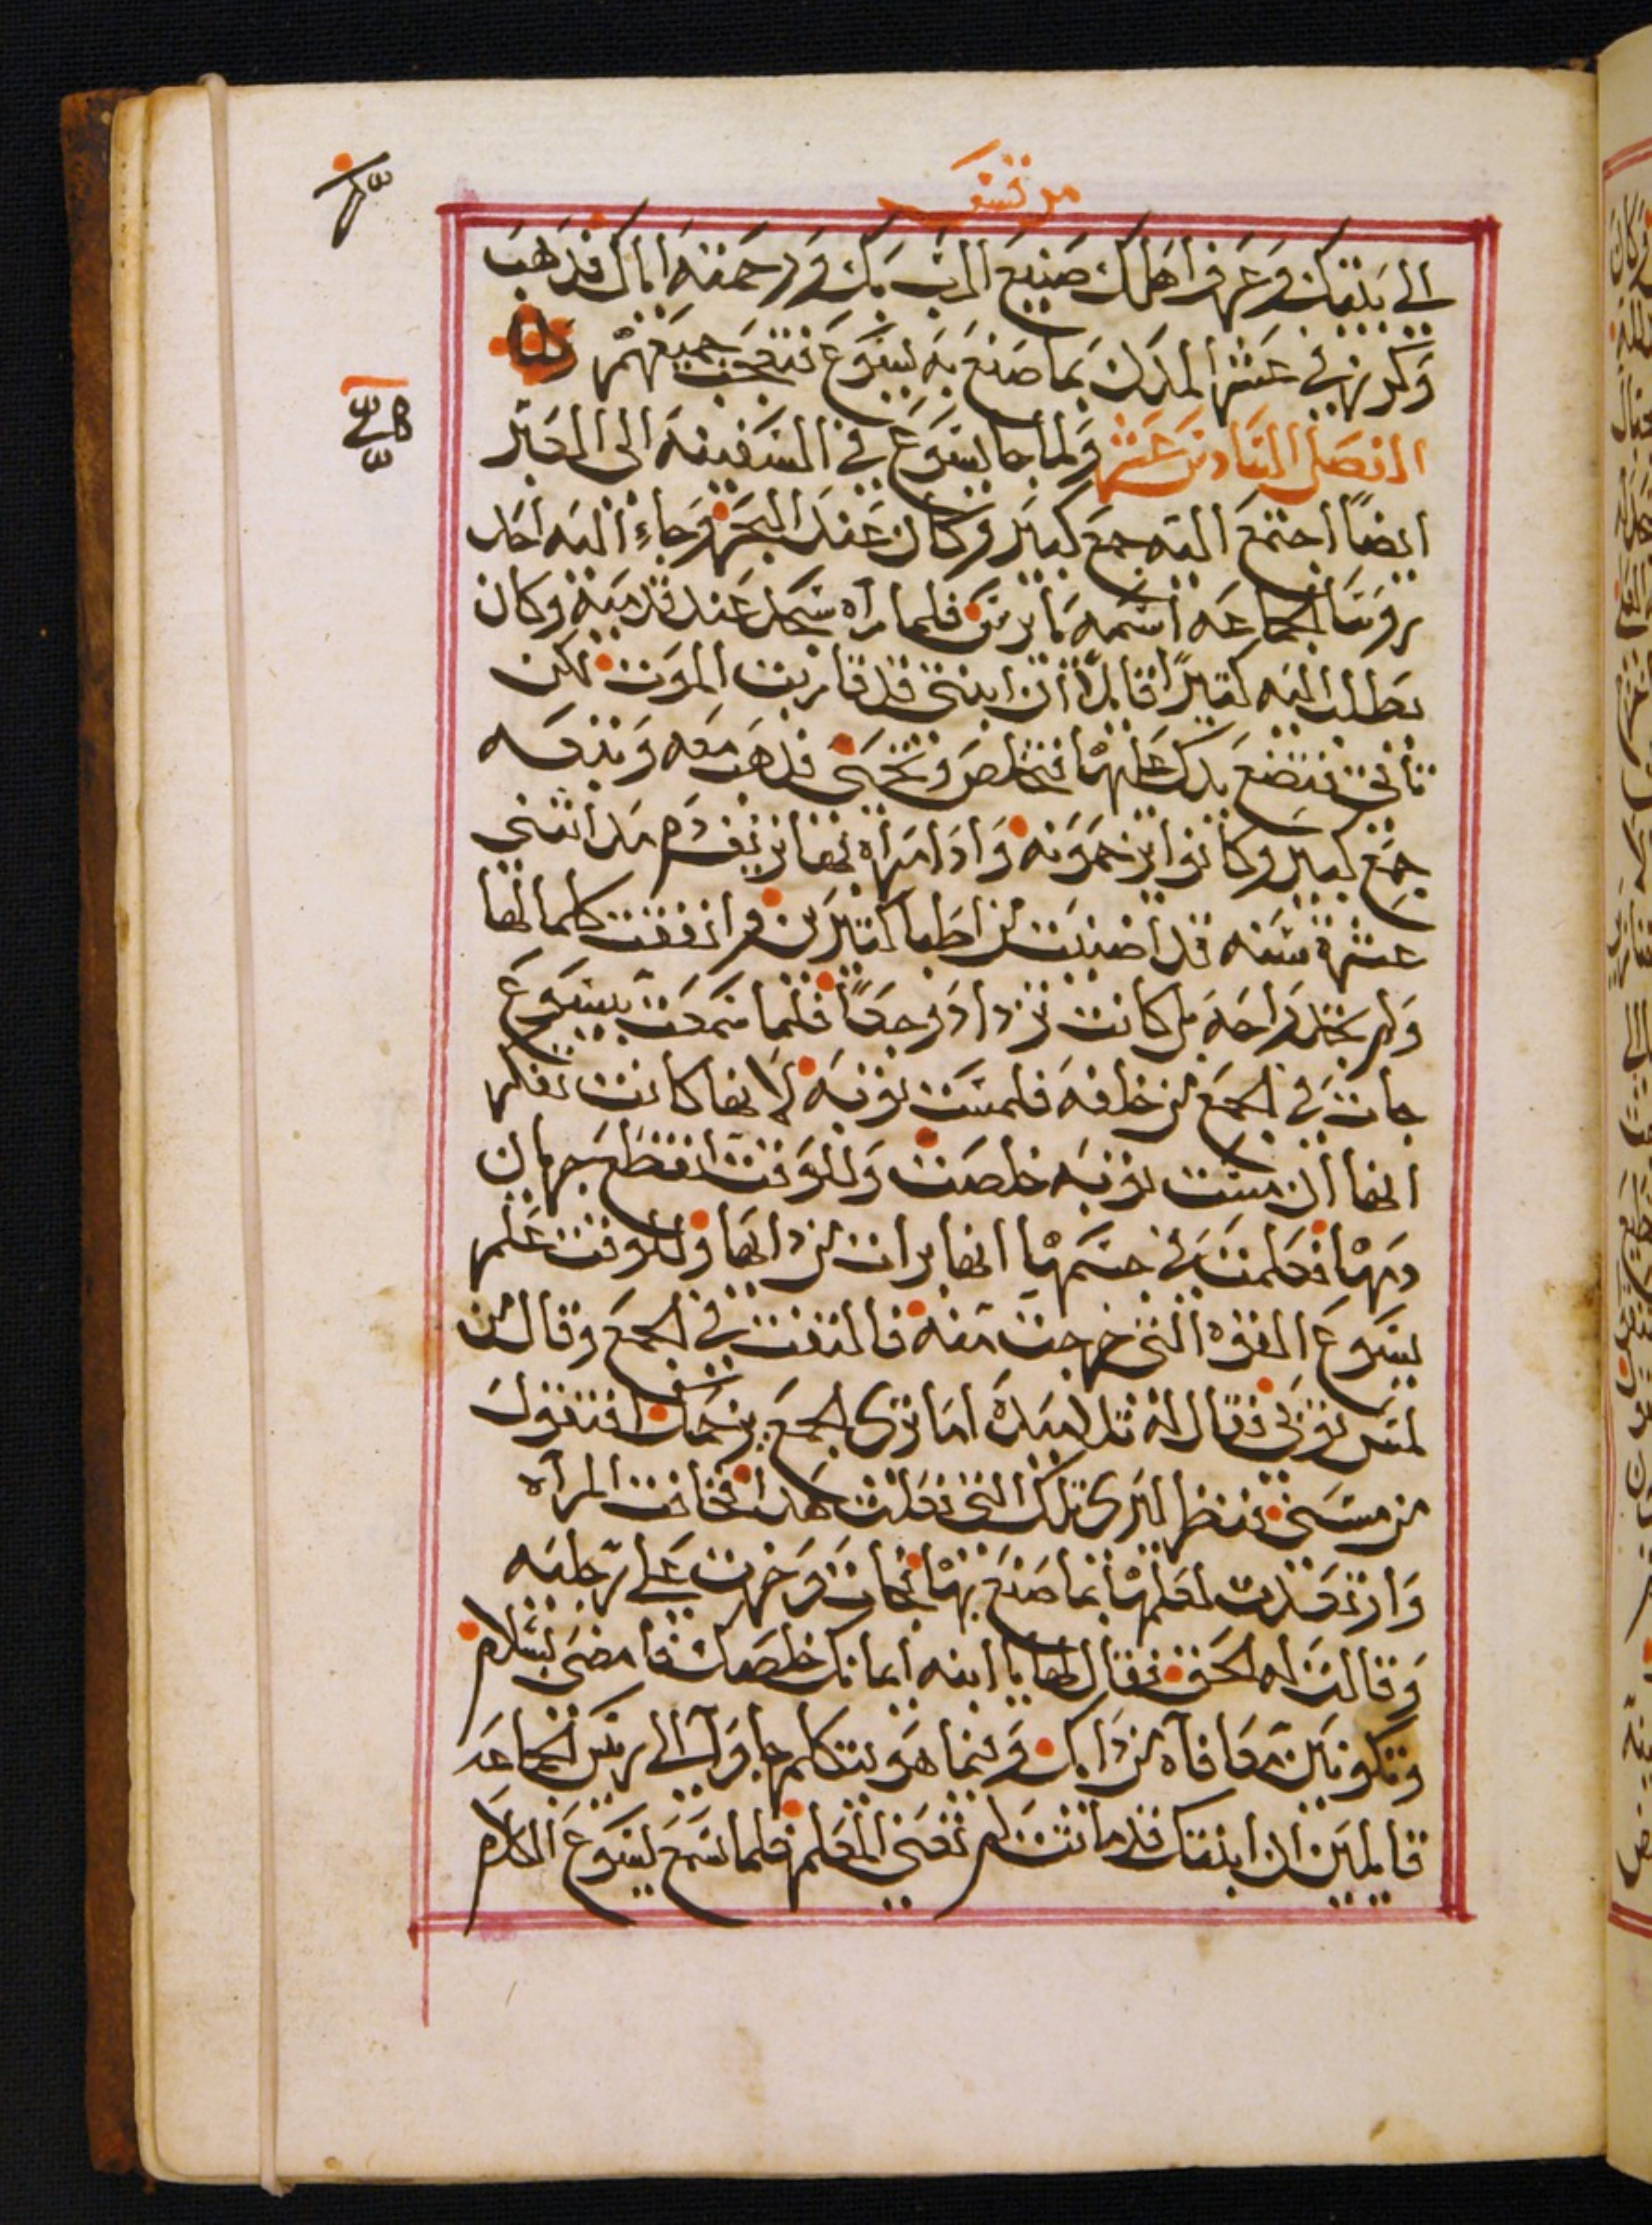 مرقس
الى بيتك وعرف اهلك صنيع الرب بك ورحمته اياك فذهب
وكرز في عشر المدن بما صنع به يسوع فتعجب جميعهم
الفصل السادس عشر ولما جا يسوع في السفينه الى العبر
ايضًا اجتمع اليه جمع كبير وكان عند البحر وجاء اليه احد
روسا الجماعه اسمه يايرس فلما راه سجد عند قدميه وكان
يطلب اليه كثيرًا قايلًا ان ابنتي قد قاربت الموت لكن
تاتي فتضع يدك عليها فتخلص وتحيى فذهب معه وتبعه
جمع كبير وكانوا يزحمونه واذا امراه بها نزيف دم مند اثنتي
عشرة سنه قد اضنيت من اطبا كثيرين وانفقت كلما لها
ولم تجد راحه بل كانت تزداد وجعًا فلما سمعت بيسوع
جات في الجمع من خلفه فلمست ثوبه لانها كانت تفكر
انها ان مست ثوبه خلصت وللوقت انقطع جريان
دمها فعلمت في جسمها انها برات من دايها وللوقت علم
يسوع القوه التي خرجت منه فالتفت في الجمع وقال من
لمس ثوبي فقال له تلاميده اما ترى الجمع يزحمك افتقول
من مسني فنظر ليرى تلك التي فعلت هدا فخافت المراه
وارتعدت لعلمها بما صنع بها فجات وخرت على رجليه
وقالت له الحق فقال لها يا ابنه ايمانك خلصك فامضى بسلام
وتكونين معافاه من دايك وبينما هو يتكلم جاوا الى ريس الجماعه
قايلين ان ابنتك قد ماتت لم تعني المعلم فلما سمع يسوع الكلام